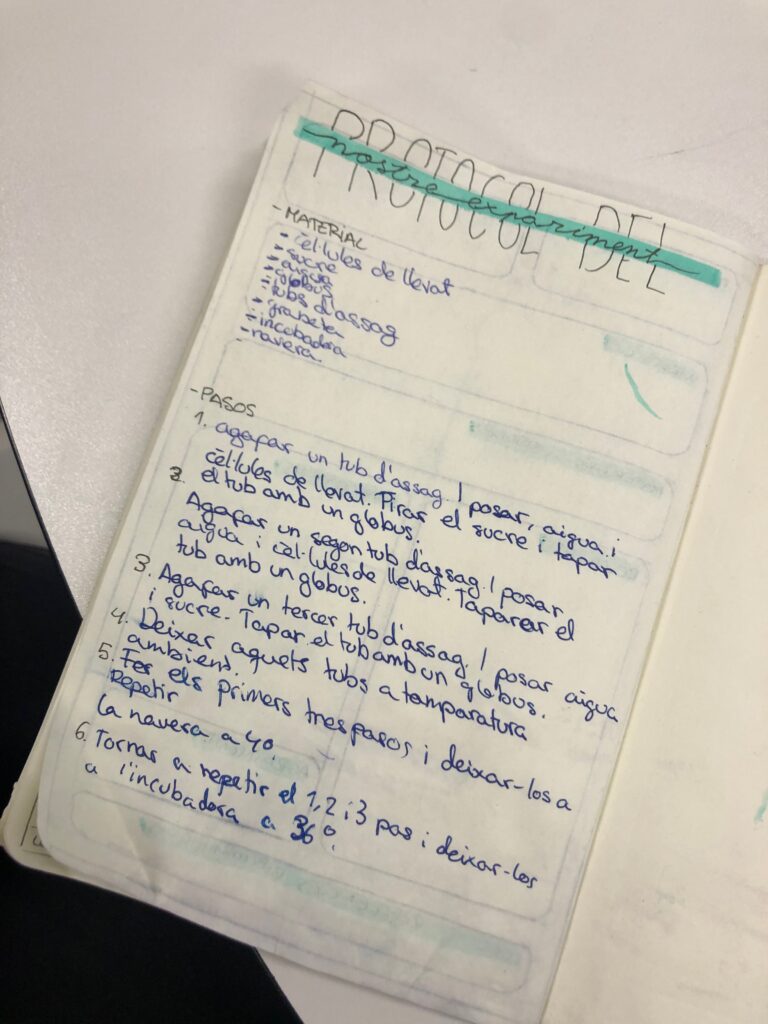 PROTOCOL DEL
nostre expariment
-MATERIAL
- cèl·lules de llevat
- sucre
- aigua
- globus
- tubs d'assag
- grabeta
- incubadora
- navera.
-PASOS
1. agafar un tub d'assag. I posar, aigua i
cèl·lules de llevat. Pirar el sucre i tapar
el tub amb un globus.
2. Agafar un segon tub d'assag. I posar
aigua i cèl·lules de llevat. Taparar el
tub amb un globus.
3. Agafar un tercer tub d'assag. I posar aigua
i sucre. Tapar el tub amb un globus.
4. Deixar aquets tubs a tamparatura
ambient.
5. Fer els primers tres pasos i deixar-los a
Repetir
la navera a 4º.
6. Tornar a repetir el 1, 2 i 3 pas i deixar-los
a l'incubadora a 36º.